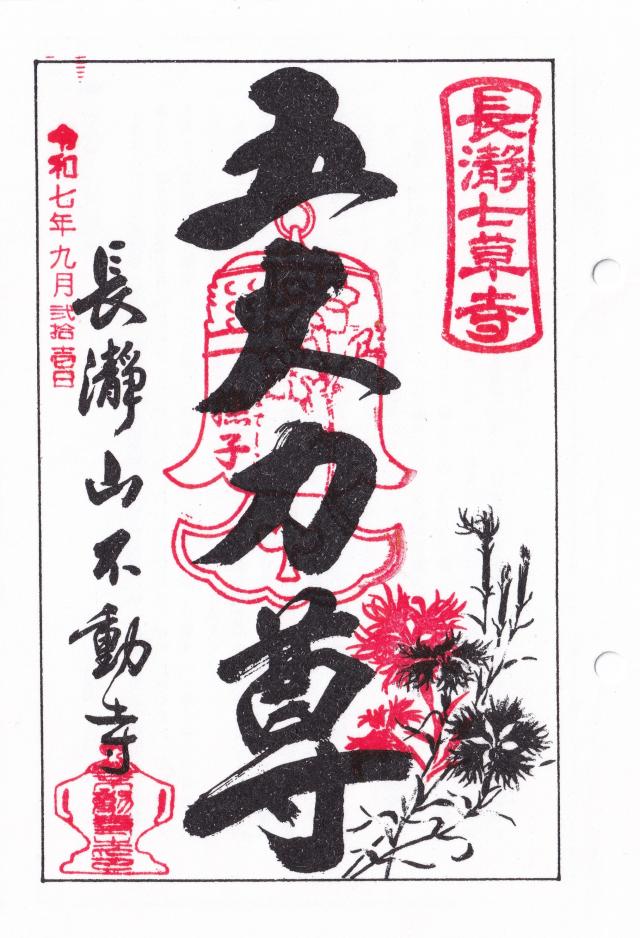 長瀞七草寺
五大力尊
撫子
令和七年九月弐拾壱日
長瀞山不動寺